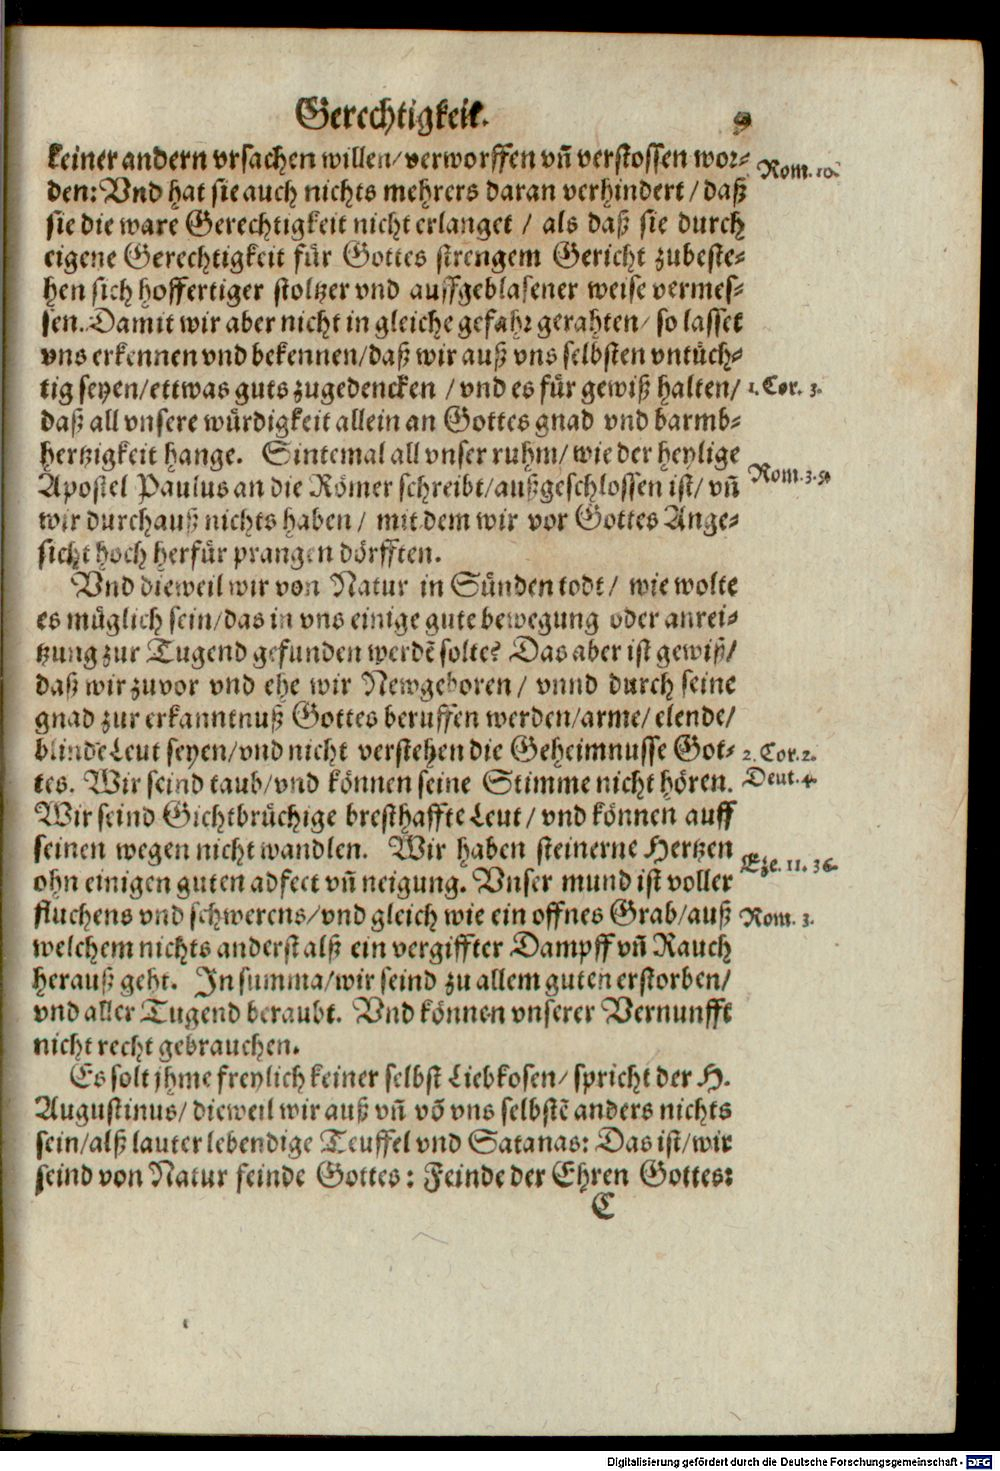 Gerechtigkeit. 9
keiner andern vrsachen willen/verworffen vñ verstossen wor-
Rom. 10.
den: Vnd hat sie auch nichts mehrers daran verhindert/daß
sie die ware Gerechtigkeit nicht erlanget / als daß sie durch
eigene Gerechtigkeit für Gottes strengem Gericht zubeste-
hen sich hoffertiger stoltzer vnd auffgeblasener weise vermes-
sen. Damit wir aber nicht in gleiche gefahr gerahten/ so lasset
vns erkennen vnd bekennen/daß wir auß vns selbsten vntüch-
tig seyen/ettwas guts zugedencken /vnd es für gewiß halten/
1. Cor. 3.
daß all vnsere würdigkeit allein an Gottes gnad vnd barmb-
hertzigkeit hange. Sintemal all vnser ruhm/wie der heylige
Apostel Paulus an die Römer schreibt/außgeschlossen ist/ vñ
Rom. 3. 9
wir durchauß nichts haben/ mit dem wir vor Gottes Ange-
sicht hoch herfür prangen dörfften.
Vnd dieweil wir von Natur in Sünden todt/ wie wolte
es müglich sein/das in vns einige gute bewegung oder anrei-
tzung zur Tugend gefunden werdẽ solte? Das aber ist gewiß/
daß wir zuvor vnd ehe wir Newgeboren/ vnnd durch seine
gnad zur erkanntnuß Gottes beruffen werden/arme/elende/
blinde Leut seyen/vnd nicht verstehen die Geheimnusse Got-
2. Cor. 2.
tes. Wir seind taub/vnd können seine Stimme nicht hören.
Deut. 4.
Wir seind Gichtbrüchige bresthaffte Leut/ vnd können auff
seinen wegen nicht wandlen. Wir haben steinerne Hertzen
Eze. 11. 36.
ohn einigen guten adfect vñ neigung. Vnser mund ist voller
fluchens vnd schwerens/vnd gleich wie ein offnes Grab/auß
Rom. 3.
welchem nichts anderst alß ein vergiffter Dampff vñ Rauch
herauß geht. In summa/wir seind zu allem guten erstorben/
vnd aller Tugend beraubt. Vnd können vnserer Vernunfft
nicht recht gebrauchen.
Es solt jhme freylich keiner selbst Liebkosen/ spricht der H.
Augustinus/ dieweil wir auß vñ võ vns selbstẽ anders nichts
sein/alß lauter lebendige Teuffel vnd Satanas: Das ist/wir
seind von Natur feinde Gottes: Feinde der Ehren Gottes:
C
Digitalisierung gefördert durch die Deutsche Forschungsgemeinschaft - DFG